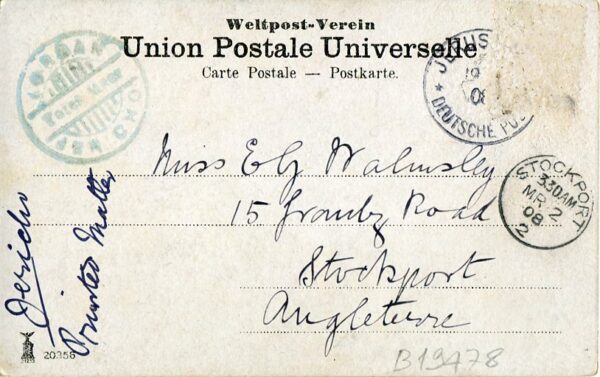 Weltpost-Verein
Union Postale Universelle
Carte Postale — Postkarte.
JORDAN
DEUTSCHE PO
Miss E G Walmsley
15 Granby Road
Stockport
Angleterre
STOCKPORT
5.30AM
MR 2
08
2
Jericho
Printed Matter
20356
B19478